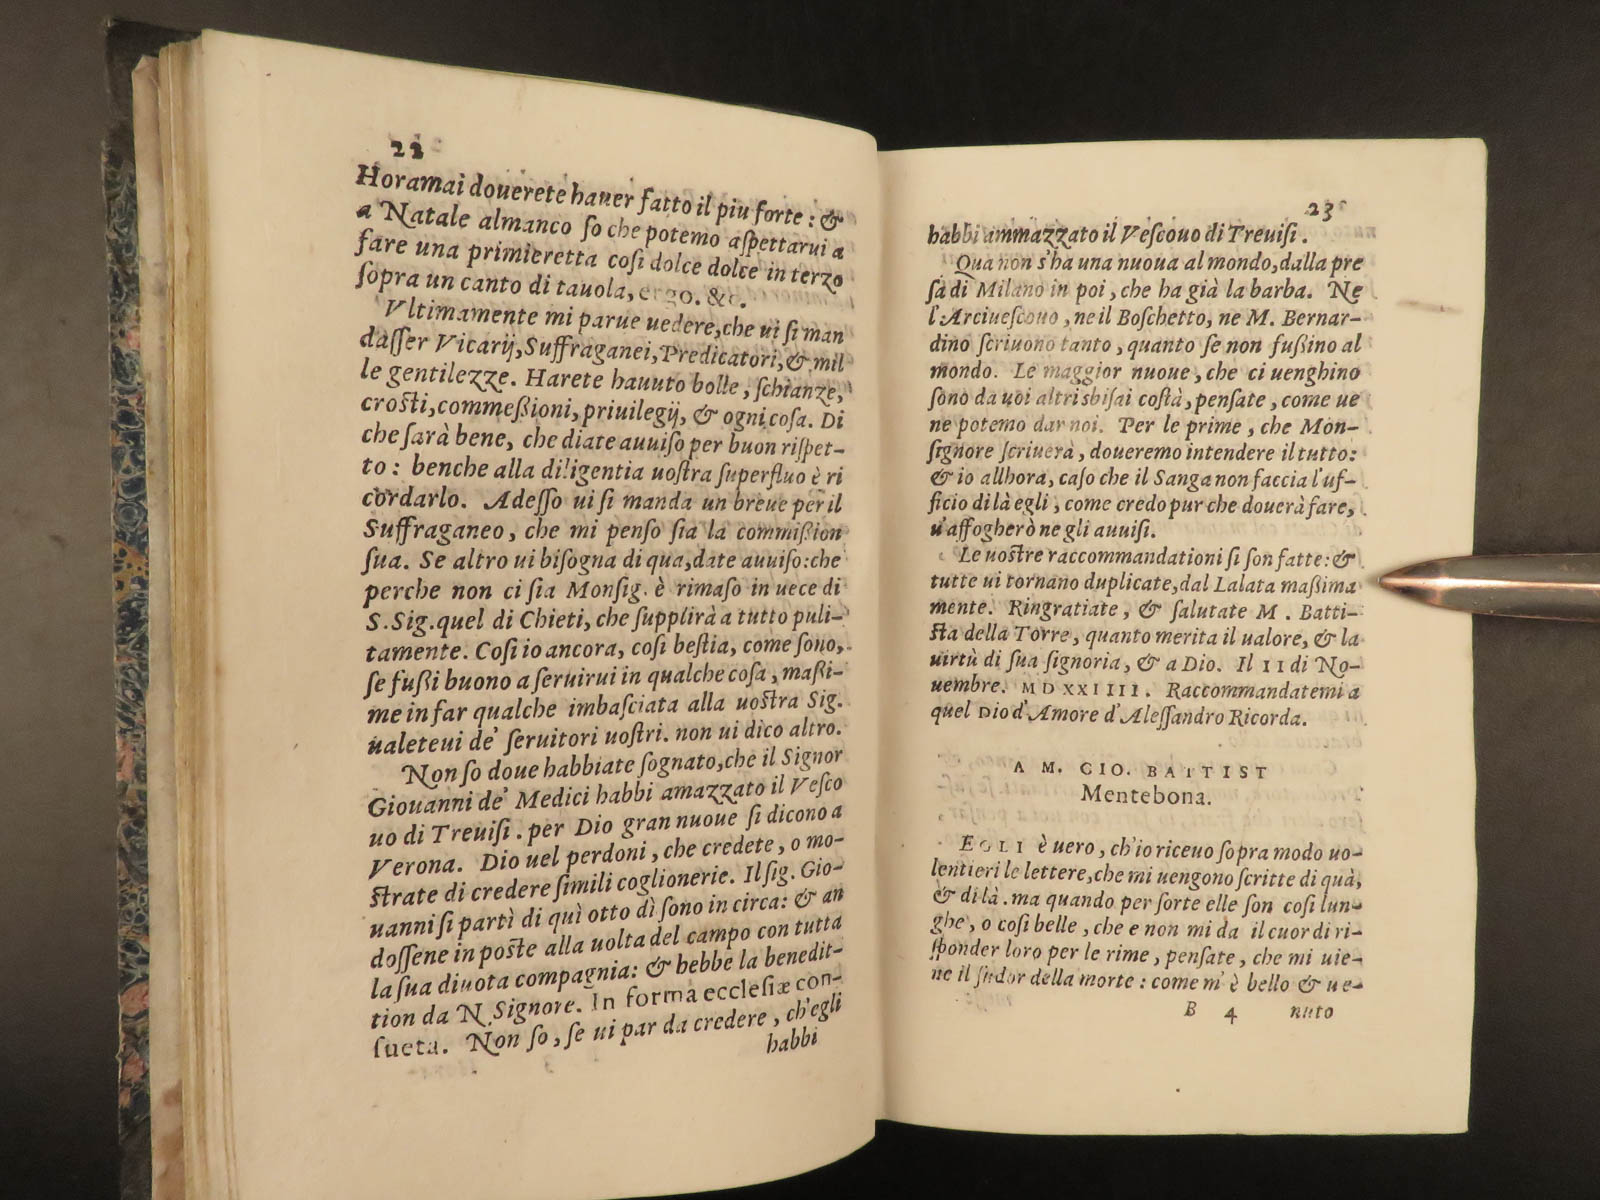 22
Horamai douerete hauer fatto il piu forte : &
a Natale almanco ſo che potemo aſpettarui a
fare una primieretta coſi dolce dolce in terzo
ſopra un canto di tauola, ergo. &c.
Vltimamente mi parue uedere, che ui ſi man
daſſer Vicarij, Suffraganei, Predicatori, & mil
le gentilezze. Harete hauuto bolle, ſchianze,
croſti, commeßioni, priuilegij, & ogni coſa. Di
che ſarà bene, che diate auuiſo per buon riſpet-
to : benche alla diligentia uoſtra ſuperfluo è ri
cordarlo. Adeſſo ui ſi manda un breue per il
Suffraganeo, che mi penſo ſia la commißion
ſua. Se altro ui biſogna di qua, date auuiſo: che
perche non ci ſia Monſig. è rimaſo in uece di
S. Sig. quel di Chieti, che ſupplirà a tutto puli-
tamente. Coſi io ancora, coſi beſtia, come ſono,
ſe fußi buono a ſeruirui in qualche coſa, maßi-
me in far qualche imbaſciata alla uoſtra Sig.
ualeteui de' ſeruitori uoſtri. non ui dico altro.
Non ſo doue habbiate ſognato, che il Signor
Giouanni de' Medici habbi amazzato il Veſco
uo di Treuiſi. per Dio gran nuoue ſi dicono a
Verona. Dio uel perdoni, che credete, o mo-
ſtrate di credere ſimili coglionerie. Il ſig. Gio-
uanni ſi partì di quì otto dì ſono in circa: & an
doſſene in poſte alla uolta del campo con tutta
la ſua diuota compagnia: & hebbe la benedit-
tion da N. Signore. In forma eccleſiæ con-
ſueta. Non ſo, ſe ui par da credere, ch'egli
habbi
23
habbi ammazzato il Veſcouo di Treuiſi.
Qua non s'ha una nuoua al mondo, dalla pre
ſa di Milano in poi, che ha già la barba. Ne
l'Arciueſcouo, ne il Boſchetto, ne M. Bernar-
dino ſcriuono tanto, quanto ſe non fußino al
mondo. Le maggior nuoue, che ci uenghino
ſono da uoi altri sbiſai coſtà, penſate, come ue
ne potemo dar noi. Per le prime, che Mon-
ſignore ſcriuerà, doueremo intendere il tutto:
& io allhora, caſo che il Sanga non faccia l'uf-
ficio di là egli, come credo pur che douerà fare,
u'affogherò ne gli auuiſi.
Le uoſtre raccommandationi ſi ſon fatte: &
tutte ui tornano duplicate, dal Lalata maßima
mente. Ringratiate, & ſalutate M. Batti-
ſta della Torre, quanto merita il ualore, & la
uirtù di ſua ſignoria, & a Dio. Il 11 di No-
uembre. MDXXIIII. Raccommandatemi a
quel Dio d'Amore d'Aleſſandro Ricorda.
A M. GIO. BATTIST
Mentebona.
EGLI è uero, ch'io riceuo ſopra modo uo-
lentieri le lettere, che mi uengono ſcritte di quà,
& di là. ma quando per ſorte elle ſon coſi lun-
ghe, o coſi belle, che e non mi da il cuor di ri-
ſponder loro per le rime, penſate, che mi uie-
ne il ſudor della morte : come m'è bello & ue-
B 4 nuto